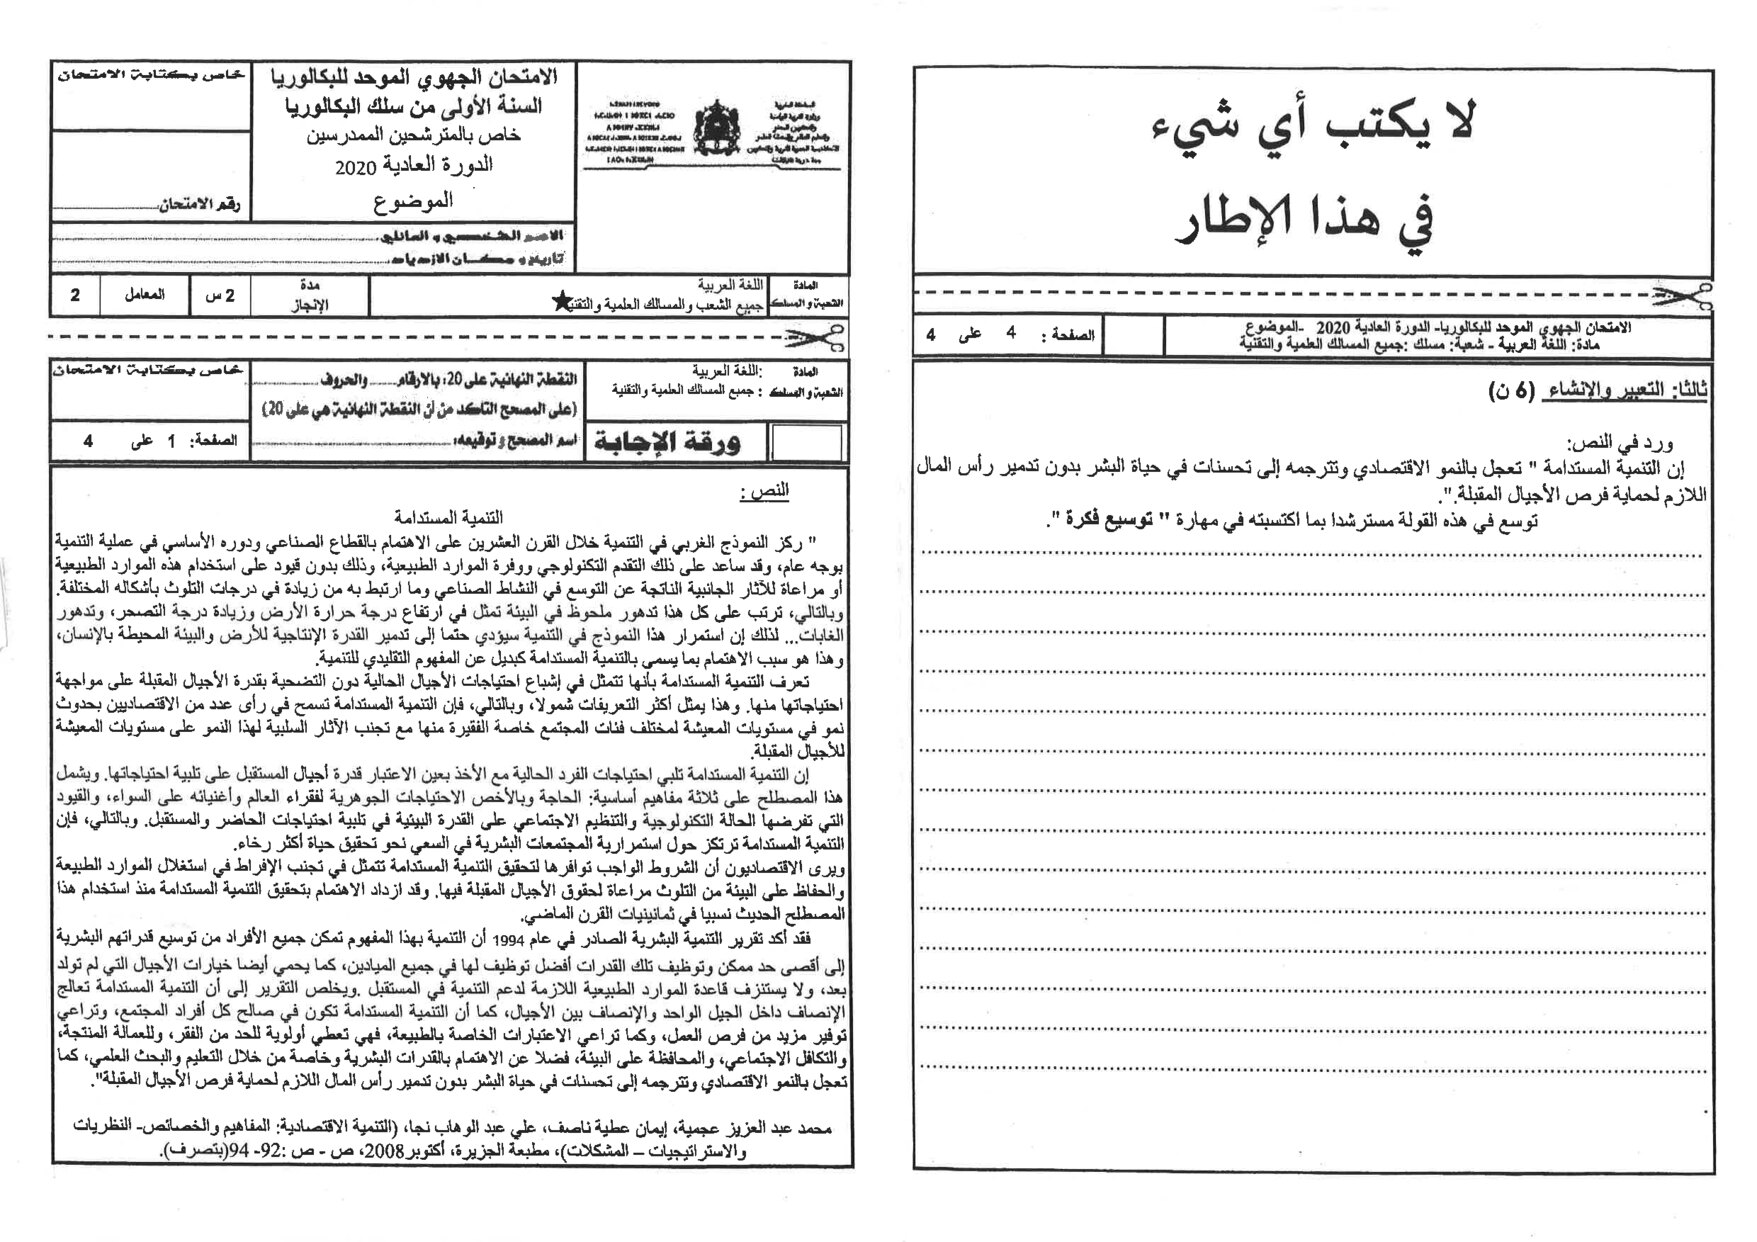 خاص بكتابة الامتحان
رقم الامتحان
الامتحان الجهوي الموحد للبكالوريا
السنة الأولى من سلك البكالوريا
خاص بالمترشحين الممدرسين
الدورة العادية 2020
الموضوع
الاسم الشخصي و العائلي
تاريخ و مكان الازدياد
المادة
اللغة العربية
الشعبة و المسلك
جميع الشعب والمسالك العلمية والتقنية
مدة الإنجاز
2 س
المعامل
2
المادة :اللغة العربية
الشعبة و المسلك : جميع المسالك العلمية والتقنية
النقطة النهائية على 20: بالأرقام........ والحروف
(على المصحح التأكد من أن النقطة النهائية هي على 20)
اسم المصحح و توقيعه:
خاص بكتابة الامتحان
ورقة الإجابة
الصفحة: 1 على 4
النص :
التنمية المستدامة
" ركز النموذج الغربي في التنمية خلال القرن العشرين على الاهتمام بالقطاع الصناعي ودوره الأساسي في عملية التنمية
بوجه عام، وقد ساعد على ذلك التقدم التكنولوجي ووفرة الموارد الطبيعية، وذلك بدون قيود على استخدام هذه الموارد الطبيعية
أو مراعاة للآثار الجانبية الناتجة عن التوسع في النشاط الصناعي وما ارتبط به من زيادة في درجات التلوث بأشكاله المختلفة.
وبالتالي، ترتب على كل هذا تدهور ملحوظ في البيئة تمثل في ارتفاع درجة حرارة الأرض وزيادة درجة التصحر، وتدهور
الغابات... لذلك إن استمرار هذا النموذج في التنمية سيؤدي حتما إلى تدمير القدرة الإنتاجية للأرض والبيئة المحيطة بالإنسان،
وهذا هو سبب الاهتمام بما يسمى بالتنمية المستدامة كبديل عن المفهوم التقليدي للتنمية.
تعرف التنمية المستدامة بأنها تتمثل في إشباع احتياجات الأجيال الحالية دون التضحية بقدرة الأجيال المقبلة على مواجهة
احتياجاتها منها. وهذا يمثل أكثر التعريفات شمولا، وبالتالي، فإن التنمية المستدامة تسمح في رأى عدد من الاقتصاديين بحدوث
نمو في مستويات المعيشة لمختلف فئات المجتمع خاصة الفقيرة منها مع تجنب الآثار السلبية لهذا النمو على مستويات المعيشة
للأجيال المقبلة.
إن التنمية المستدامة تلبي احتياجات الفرد الحالية مع الأخذ بعين الاعتبار قدرة أجيال المستقبل على تلبية احتياجاتها. ويشمل
هذا المصطلح على ثلاثة مفاهيم أساسية: الحاجة وبالأخص الاحتياجات الجوهرية لفقراء العالم وأغنيائه على السواء، والقيود
التي تفرضها الحالة التكنولوجية والتنظيم الاجتماعي على القدرة البيئية في تلبية احتياجات الحاضر والمستقبل. وبالتالي، فإن
التنمية المستدامة ترتكز حول استمرارية المجتمعات البشرية في السعي نحو تحقيق حياة أكثر رخاء.
ويرى الاقتصاديون أن الشروط الواجب توافرها لتحقيق التنمية المستدامة تتمثل في تجنب الإفراط في استغلال الموارد الطبيعة
والحفاظ على البيئة من التلوث مراعاة لحقوق الأجيال المقبلة فيها. وقد ازداد الاهتمام بتحقيق التنمية المستدامة منذ استخدام هذا
المصطلح الحديث نسبيا في ثمانينيات القرن الماضي.
فقد أكد تقرير التنمية البشرية الصادر في عام 1994 أن التنمية بهذا المفهوم تمكن جميع الأفراد من توسيع قدراتهم البشرية
إلى أقصى حد ممكن وتوظيف تلك القدرات أفضل توظيف لها في جميع الميادين، كما يحمي أيضا خيارات الأجيال التي لم تولد
بعد، ولا يستنزف قاعدة الموارد الطبيعية اللازمة لدعم التنمية في المستقبل .ويخلص التقرير إلى أن التنمية المستدامة تعالج
الإنصاف داخل الجيل الواحد والإنصاف بين الأجيال، كما أن التنمية المستدامة تكون في صالح كل أفراد المجتمع، وتراعي
توفير مزيد من فرص العمل، وكما تراعي الاعتبارات الخاصة بالطبيعة، فهي تعطي أولوية للحد من الفقر، وللعمالة المنتجة،
والتكافل الاجتماعي، والمحافظة على البيئة، فضلا عن الاهتمام بالقدرات البشرية وخاصة من خلال التعليم والبحث العلمي، كما
تعجل بالنمو الاقتصادي وتترجمه إلى تحسنات في حياة البشر بدون تدمير رأس المال اللازم لحماية فرص الأجيال المقبلة".
محمد عبد العزيز عجمية، إيمان عطية ناصف، علي عبد الوهاب نجا، (التنمية الاقتصادية: المفاهيم والخصائص- النظريات
والاستراتيجيات – المشكلات)، مطبعة الجزيرة، أكتوبر2008، ص - ص :92- 94(بتصرف).
لا يكتب أي شيء
في هذا الإطار
الامتحان الجهوي الموحد للبكالوريا- الدورة العادية 2020 -الموضوع
مادة: اللغة العربية - شعبة: مسلك :جميع المسالك العلمية والتقنية
الصفحة : 4 على 4
ثالثا: التعبير والإنشاء (6 ن)
ورد في النص:
إن التنمية المستدامة " تعجل بالنمو الاقتصادي وتترجمه إلى تحسنات في حياة البشر بدون تدمير رأس المال
اللازم لحماية فرص الأجيال المقبلة.".
توسع في هذه القولة مسترشدا بما اكتسبته في مهارة " توسيع فكرة ".